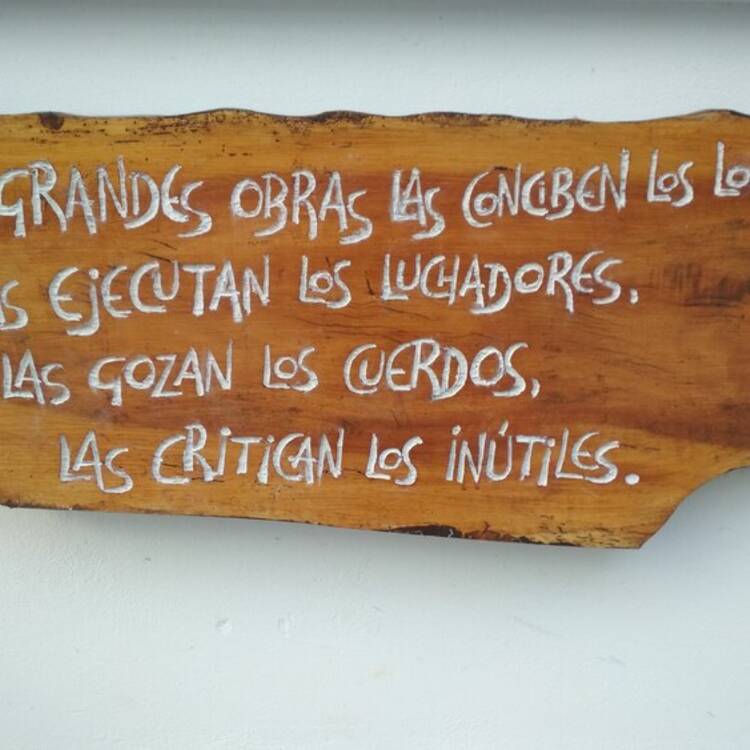 GRANDES OBRAS LAS CONCIBEN LOS
EJECUTAN LOS LUCHADORES.
LAS GOZAN LOS CUERDOS,
LAS CRITICAN LOS INÚTILES.